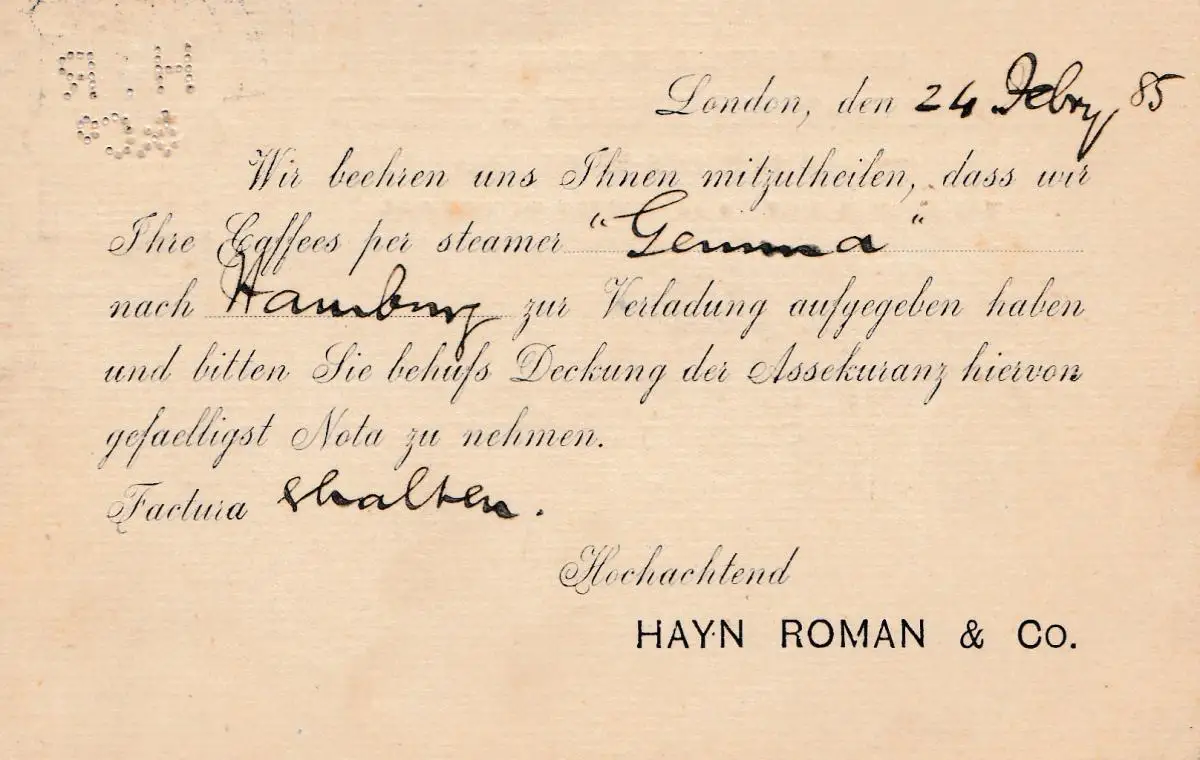 H. R
& Co
London, den 24 Febry, 85
Wir beehren uns Ihnen mitzutheilen, dass wir
Ihre Caffees per steamer "Gemma"
nach Hamburg zur Verladung aufgegeben haben
und bitten Sie behufs Deckung der Assekuranz hiervon
gefaelligst Nota zu nehmen.
Factura erhalten.
Hochachtend
HAYN ROMAN & Co.